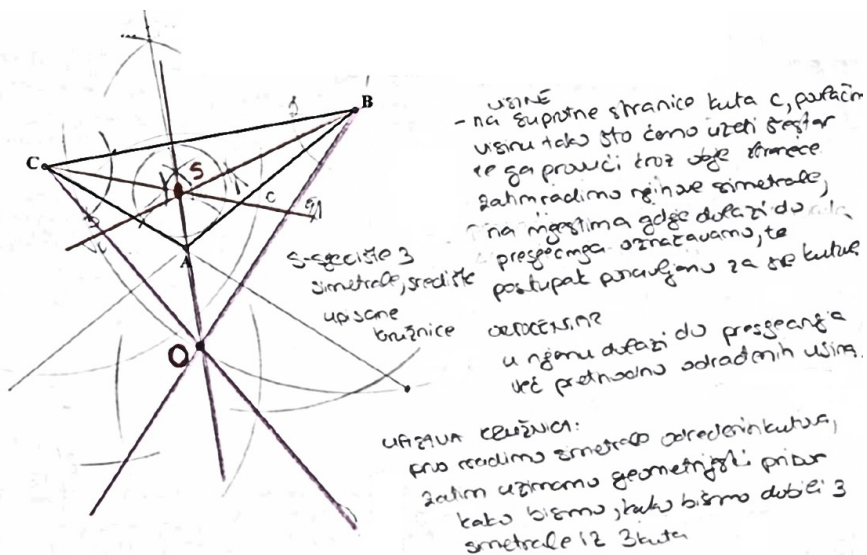 B
C
S
C
A
O
S-sjecište 3
simetrale, središte
upisane
kružnice
VISINE
- na suprotne stranice kuta C, povlačimo
visinu tako što ćemo uzeti šestar
te ga provući kroz obje stranice
zatim radimo njihove simetrale,
na mjestima gdje dolazi do
presjecanja označavamo, te
postupak ponavljamo za sve kutove
ORTOCENTAR
u njemu dolazi do presjecanja
već prethodno odrađenih visina.
UPISANA KRUŽNICA:
prvo radimo simetrale određenih kutova,
zatim uzimamo geometrijski pribor
kako bismo, kako bismo dobili 3
simetrale iz 3 kuta